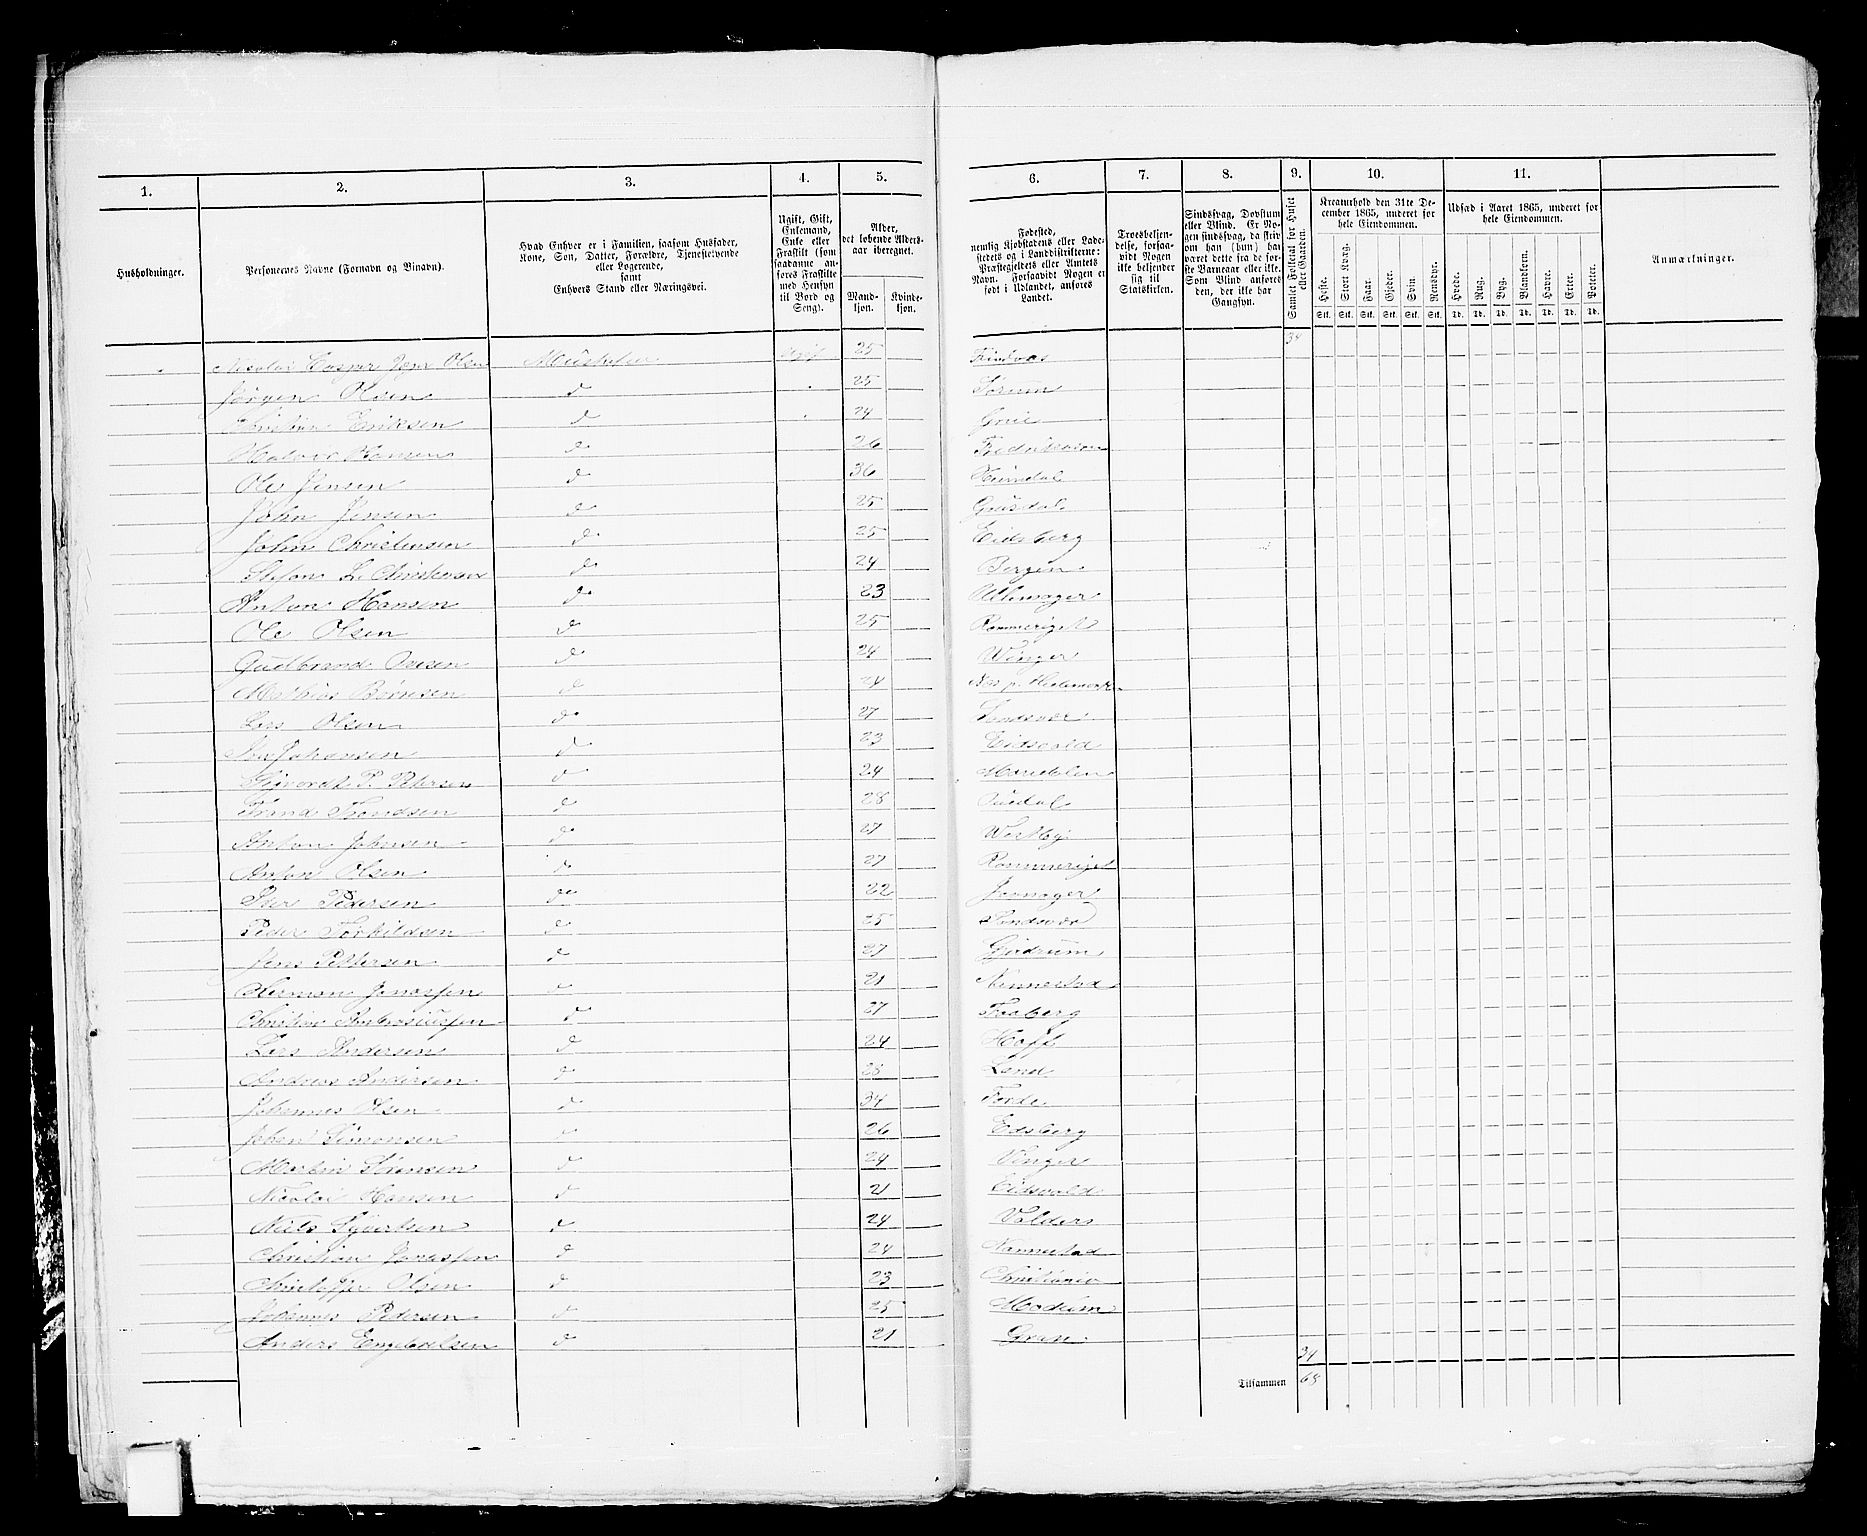 1. 2. 3. 4. 5. 6. 7. 8. 9. 10. 11.
Husholdninger.
Personernes Navne (Fornavn og Vinavn).
Hvad Enhver er i Familien, saasom Husfader,
Kone, Søn, Datter, Forældre, Tjenestetyende
eller Logerende,
samt
Enhvers Stand eller Næringsvei.
Ugift, Gift,
Enkemand,
Enke eller
Fraskilt (som
saadanne an-
føres Fraskilte
med Hensyn
til Bord og
Seng).
Alder,
det løbende Alders-
aar iberegnet.
Mand-
kjøn.
Kvinde-
kjøn.
Fødested,
nemlig Kjøbstadens eller Lade-
stedets og i Landdistrikterne:
Præstegjeldets eller Amtets
Navn. Forsaavidt Nogen er
født i Udlandet, anføres
Landet.
Troesbekjen-
delse, forsaa-
vidt Nogen
ikke bekjender
sig til
Statskirken.
Sindssvag, Døvstum
eller Blind. Er No-
gen sindssvag, da skriv
om han (hun) har
været dette fra de før-
ste Barneaar eller ikke.
Som Blind anføres
den, der ikke har
Gangsyn.
Samlet Folketal for Huset
eller Gaarden.
Kreaturhold den 31te De-
cember 1865, underet for
hele Eiendommen.
Heste. Stort Kvæg. Faar. Gjeder. Svin. Rensdyr.
Stk. Stk. Stk. Stk. Stk. Stk.
Udsæd i Aaret 1865, underet for
hele Eiendommen.
Hvede. Rug. Byg. Blandkorn. Havre. Erter. Poteter.
Td. Td. Td. Td. Td. Td. Td.
Anmærkninger.
34
Nicolai Casper Olsen 25
Jørgen Olsen d 25 Sørum
Christian Eriksen d 24 Grue
Halvor Hansen d 26
Ole Jensen d 36
John Jensen d 25
John Christensen d 25 Eidsberg
Stefan L. Christensen d 24 Bergen
Anton Hansen d 23 Ullensager
Ole Olsen d 25 Rommeriget
Gudbrand d 24 Winger
Mathias d 24 Næs p. Hedemarken
Lars Olsen d 27 Sandsvær
Johansen d 23 Eidsvold
P. Petersen d 24 Maridalen
d 28
Anton Johnsen d 27 Westby
Anton Olsen d 27 Rommeriget
Pedersen d 22
Peder Torkildsen d 25 Sandsvær
Jens Pettersen d 27 Gjedrum
Herman Jonassen d 21 Nannestad
Christian Ambrosiussen d 27 Faaberg
Lars Andersen d 24 Hoff
Andreas Andersen d 28 Land
Johannes Olsen d 34 Førde
Johan Simonsen d 26 Edsberg
Martin Sørensen d 24 Vinger
Nicolai Hansen d 21 Eidsvold
Niels Syvertsen d 24 Valders
Christian Jonassen d 24 Nannestad
Christoffer Olsen d 23 Christiania
Johannes Pedersen d 25 Modum
Anders Engebretsen d 21 Gran
34
Tilsammen 68